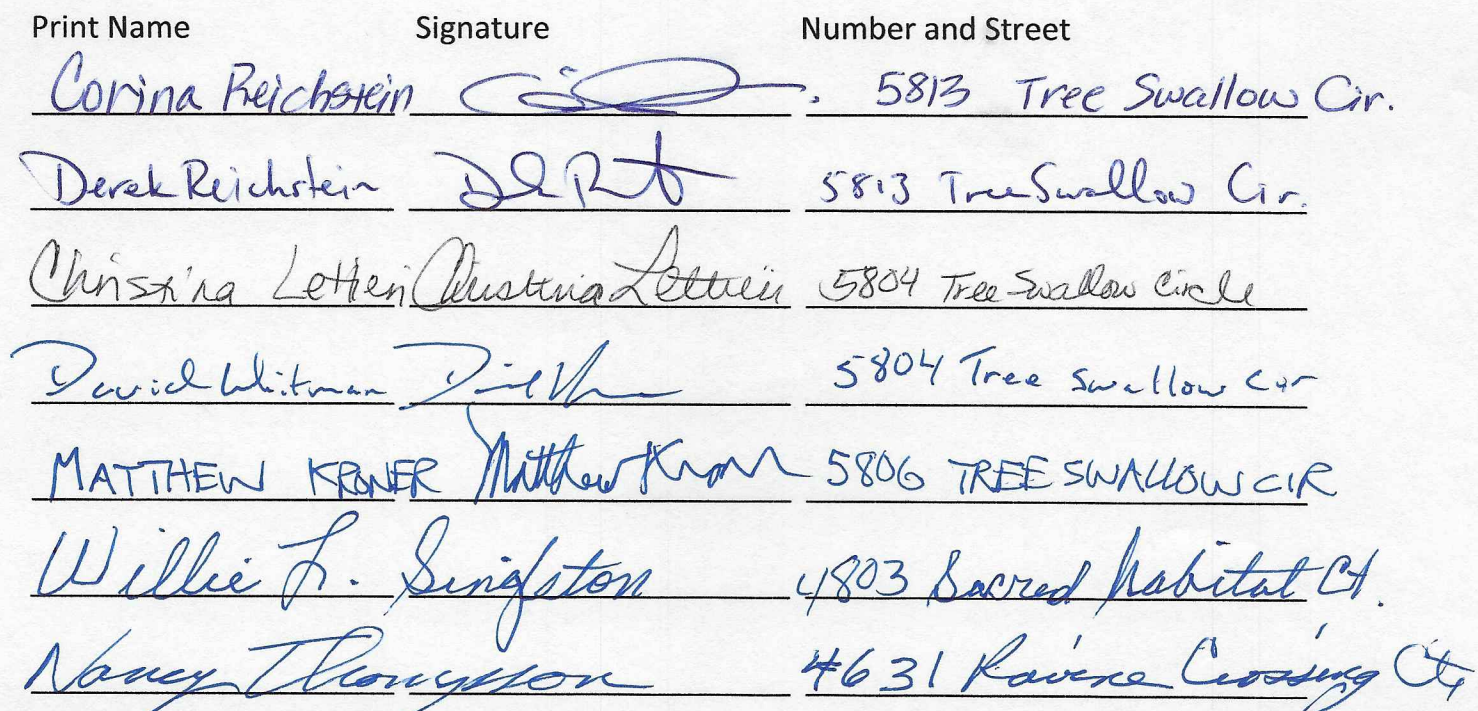 Print Name Signature Number and Street
Corina Reichstein 5813 Tree Swallow Cir.
Derek Reichstein 5813 Tree Swallow Cir.
Christina Lettieri Christina Lettieri 5804 Tree Swallow Circle
David Whitman 5804 Tree Swallow Cir
MATTHEW KRONER Matthew Kroner 5806 TREE SWALLOW CIR
Willie L. Singleton 4803 Sacred Habitat Ct.
Nancy Thompson 4631 Ravine Crossing Ct,